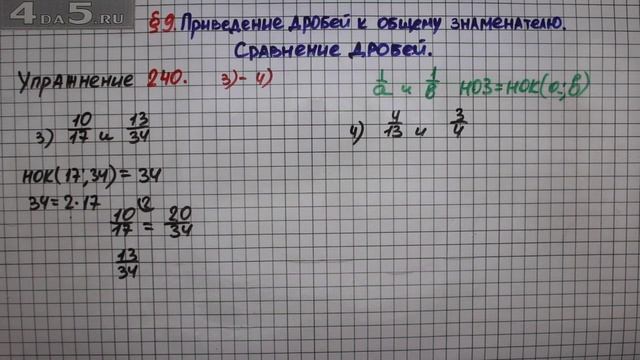 4DA5.RU
§9. Приведение дробей к общему знаменателю.
Сравнение дробей.
Упражнение 240. 3)-4)
1/a и 1/b НОЗ=НОК(a;b)
3) 10/17 и 13/34
4) 4/13 и 3/4
НОК(17;34)=34
34=2·17
10/17 (2 = 20/34
13/34